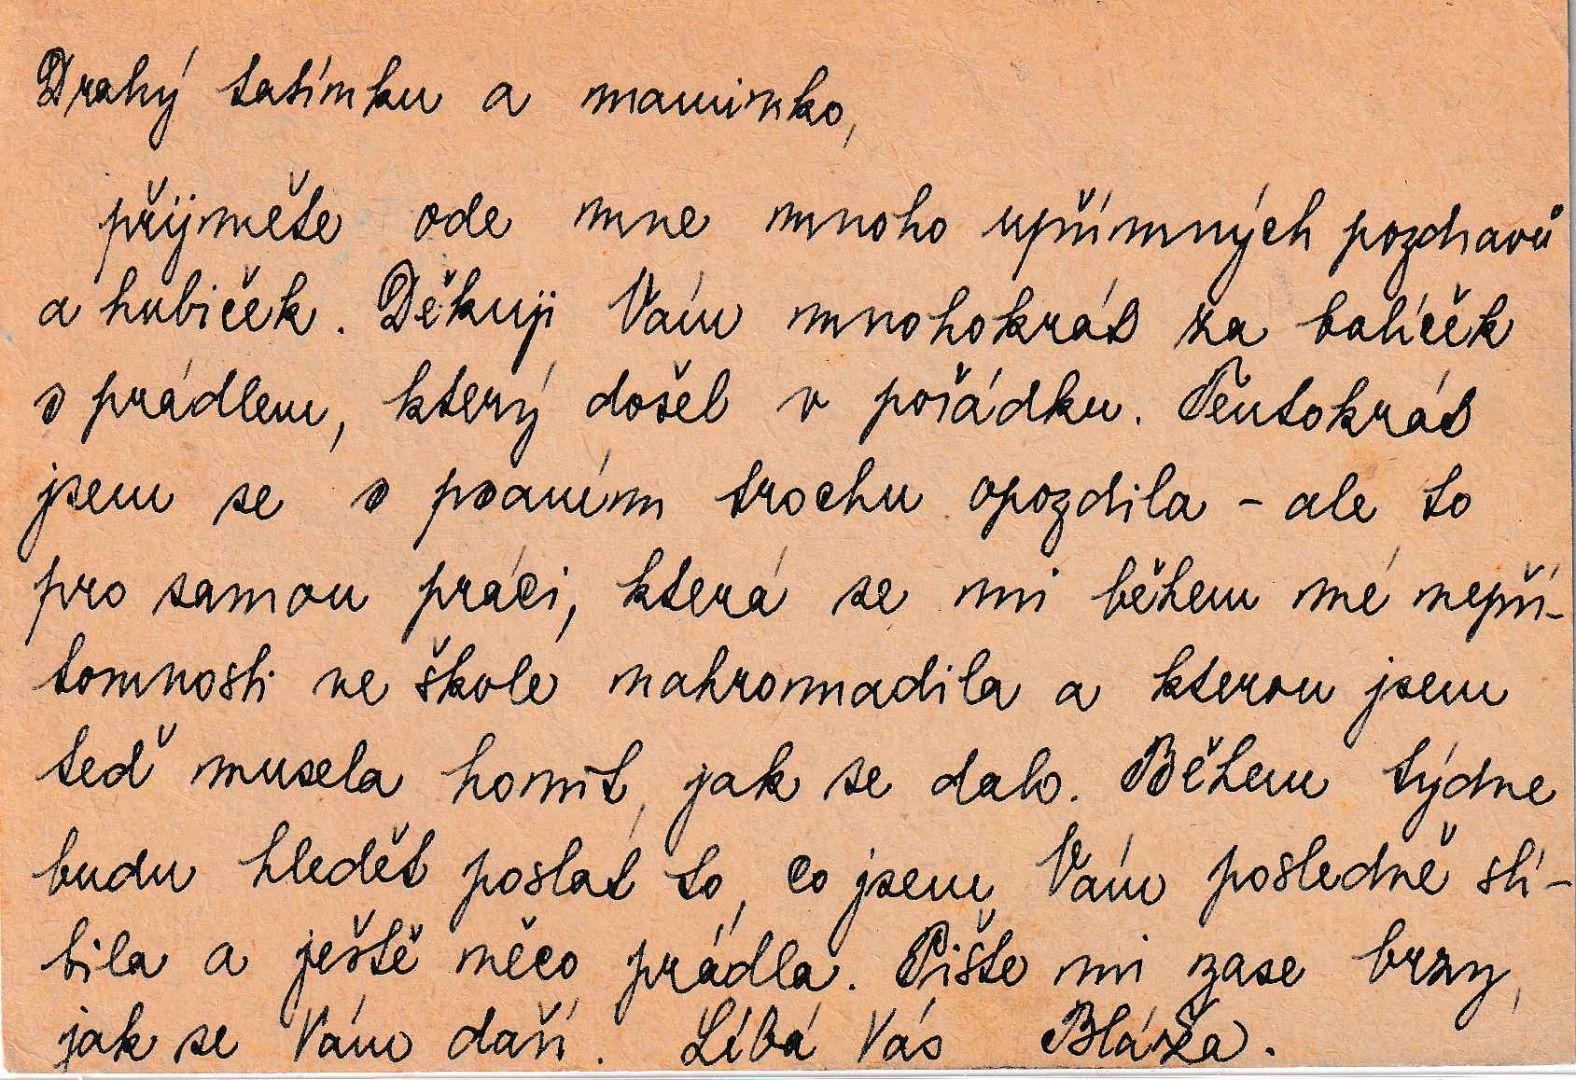 Drahý tatínku a maminko,
přijměte ode mne mnoho upřímných pozdravů
a hubiček. Děkuji Vám mnohokrát za balíček
s prádlem, který došel v pořádku. Tentokrát
jsem se s psaním trochu opozdila - ale to
pro samou práci, která se mi během mé nepří-
tomnosti ve škole nahromadila a kterou jsem
teď musela honit, jak se dalo. Během týdne
budu hledět poslat to, co jsem Vám posledně slí-
bila a ještě něco prádla. Pište mi zase brzy,
jak se Vám daří. Líbá Vás Bláža.